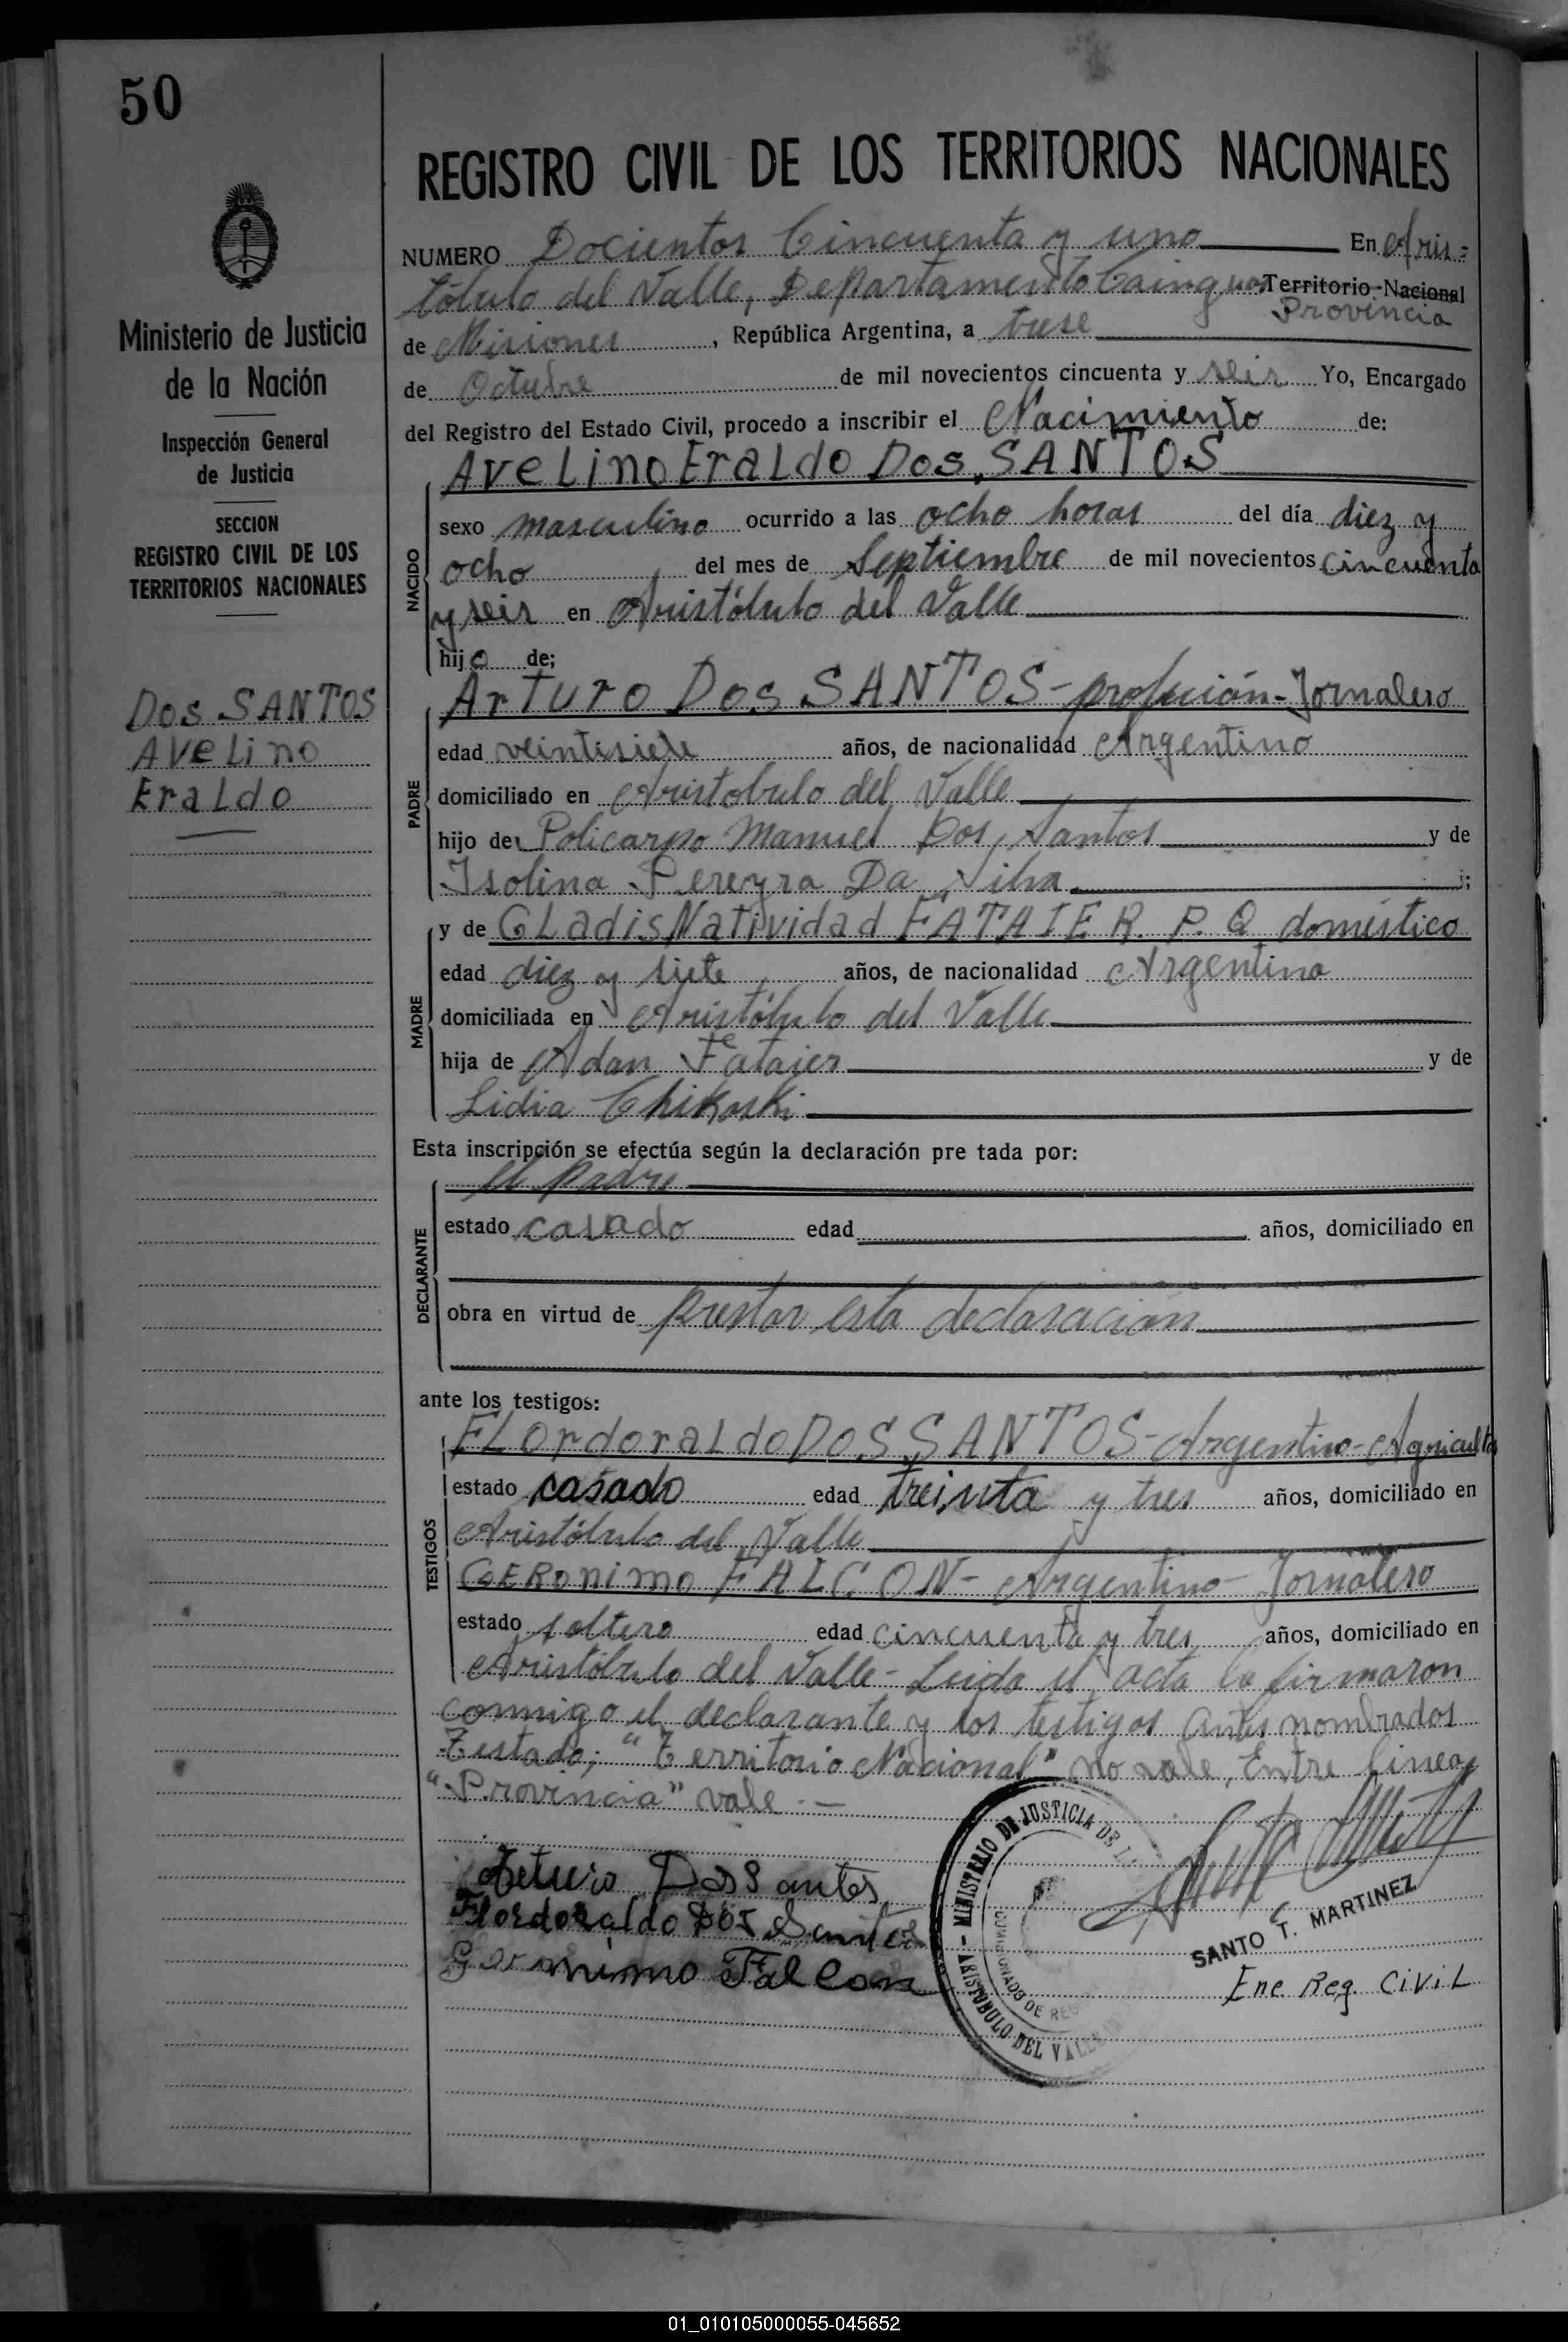 50
Ministerio de Justicia
de la Nación
Inspección General
de Justicia
SECCION
REGISTRO CIVIL DE LOS
TERRITORIOS NACIONALES
DOS SANTOS
AveLino
EraLdo
REGISTRO CIVIL DE LOS TERRITORIOS NACIONALES
NUMERO Docientos Cincuenta y uno En Aris=
tóbulo del Valle, Departamento Cainguas Territorio Nacional
Provincia
de Misiones, República Argentina, a trese
de Octubre de mil novecientos cincuenta y seis Yo, Encargado
del Registro del Estado Civil, procedo a inscribir el Nacimiento de:
AveLino EraLdo Dos SANTOS
NACIDO
sexo masculino ocurrido a las ocho horas del día diez y
ocho del mes de Septiembre de mil novecientos cincuenta
y seis en Aristóbulo del Valle
hijo de;
PADRE
ArTuro Dos SANTOS - profeción - Jornalero
edad veintisiete años, de nacionalidad Argentino
domiciliado en Aristobulo del Valle
hijo de Policarpo Manuel Dos Santos y de
Isolina Pereyra Da Silva ;
MADRE
y de GLadis Natividad FATAIER. P. Q. doméstico
edad diez y siete años, de nacionalidad Argentina
domiciliada en Aristóbulo del Valle
hija de Adan Fataier y de
Lidia Chikoski
Esta inscripción se efectúa según la declaración pre tada por:
DECLARANTE
el padre
estado casado edad años, domiciliado en
obra en virtud de prestar esta declaración
ante los testigos:
TESTIGOS
FLordoraLdo Dos SANTOS - Argentino - Agricultor
estado casado edad treinta y tres años, domiciliado en
Aristóbulo del Valle
GERonimo FALCON - Argentino - Jornalero
estado soltero edad cincuenta y tres años, domiciliado en
Aristóbulo del Valle - Leida el acta la firmaron
conmigo el declarante y los testigos antes nombrados
Testado; "Territorio Nacional" no vale, Entre lineas
"Provincia" vale . —
Arturo Dos Santos
Flordoraldo Dos Santos
Geronimo Falcon
MINISTERIO DE JUSTICIA DE L
ARISTOBULO DEL VALLE
SANTO T. MARTINEZ
Enc Reg. CiviL
01_010105000055-045652